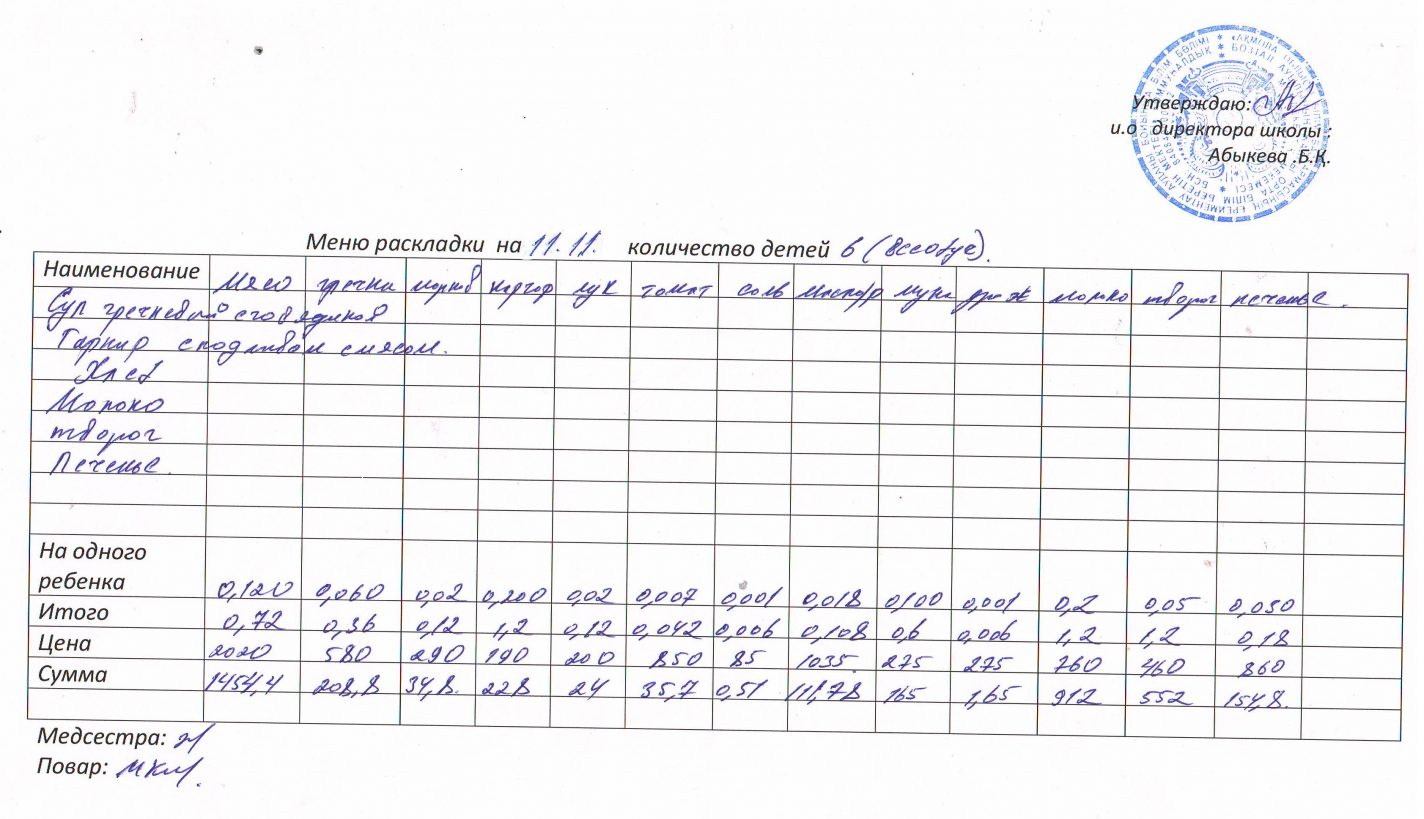 Утверждаю:
и.о директора школы :
Абыкева .Б.Қ.
Меню раскладки на 11.11. количество детей 6
Наименование Мясо гречка морков картоф лук томат соль масло/р мука дрож молоко творог печенье.
Суп гречневый с говядиной
Гарнир с подливом с мясом.
Хлеб
Молоко
творог
Печенье.
На одного
ребенка 0,120 0,060 0,02 0,200 0,02 0,007 0,001 0,018 0,100 0,001 0,2 0,05 0,030
Итого 0,72 0,36 0,12 1,2 0,12 0,042 0,006 0,108 0,6 0,006 1,2 1,2 0,18
Цена 2020 580 290 190 200 850 85 1035. 275 275 760 460 860
Сумма 1454,4 208,8 34,8. 228 24 35,7 0,51 111,78 165 1,65 912 552 154,8.
Медсестра:
Повар: